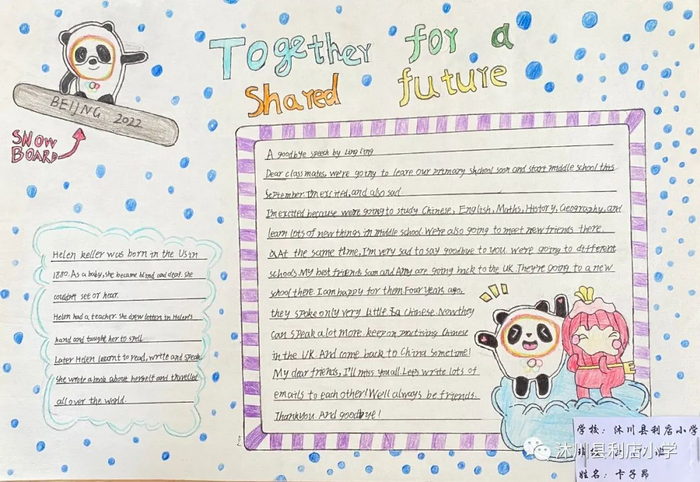 Together for a
Shared future
BEIJING 2022
SNOW
BOARD
A goodbye speech by Ling Ling
Dear classmates, we're going to leave our primary shchool soon and start middle school this
September. I'm excited, and also sad
I'm excited because we're going to study Chinese, English, Maths, History, Geography, and
learn lots of new things in middle school. We're also going to meet new friends there.
At the same time, I'm very sad to say goodbye to you. we're going to different
schools. My best friends Sam and Amy are going back to the UK. They're going to a new
school there. I am happy for them. Four years ago,
they spoke only very little Chinese. Now they
can speak a lot more. keep on practising Chinese
in the UK. And come back to China sometime!
My dear friends, I'll miss you all. Let's write lots of
emails to each other! We'll always be friends.
Thank you. And goodbye!
Helen keller was born in the Us in
1880. As a baby, she became blind and deaf. she
couldn't see or hear.
Helen had a teacher. she drew letters in Helen's
hand and taught her to spell.
Later Helen learnt to read, write and speak.
she wrote a book about herself and travelled
all over the world.
学校: 沐川县利店小学
姓名: 卞子昂
沐川县利店小学